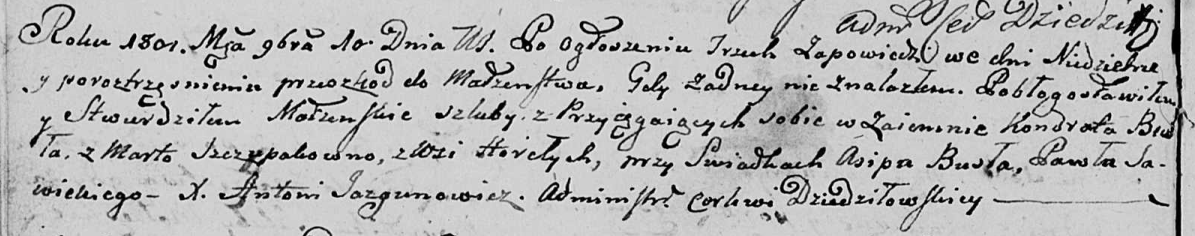 Adm Ced Dziedzi
Roku 1801. Mca 9bra 10 Dnia Us. Po ogłoszeniu Trzech Zapowiedzi we dni Niedzielne
y poroztrząsnieniu przeszkod do Małzenstwa, Gdy Zadney nie znalazłem. Pobłogosławiłem
y Stwerdziłem Małzenskie szluby z Przysięgaiących sobie w Zaiemnie Kondrata Bus
ła. z Marto Szczepakowno, z Wsi Horełych, przy Swiadkach Asipa Busła, Pawła Sa-
wickiego - X. Antoni Jazgunowicz. Administr Cerkwi Dziedziłowskiey